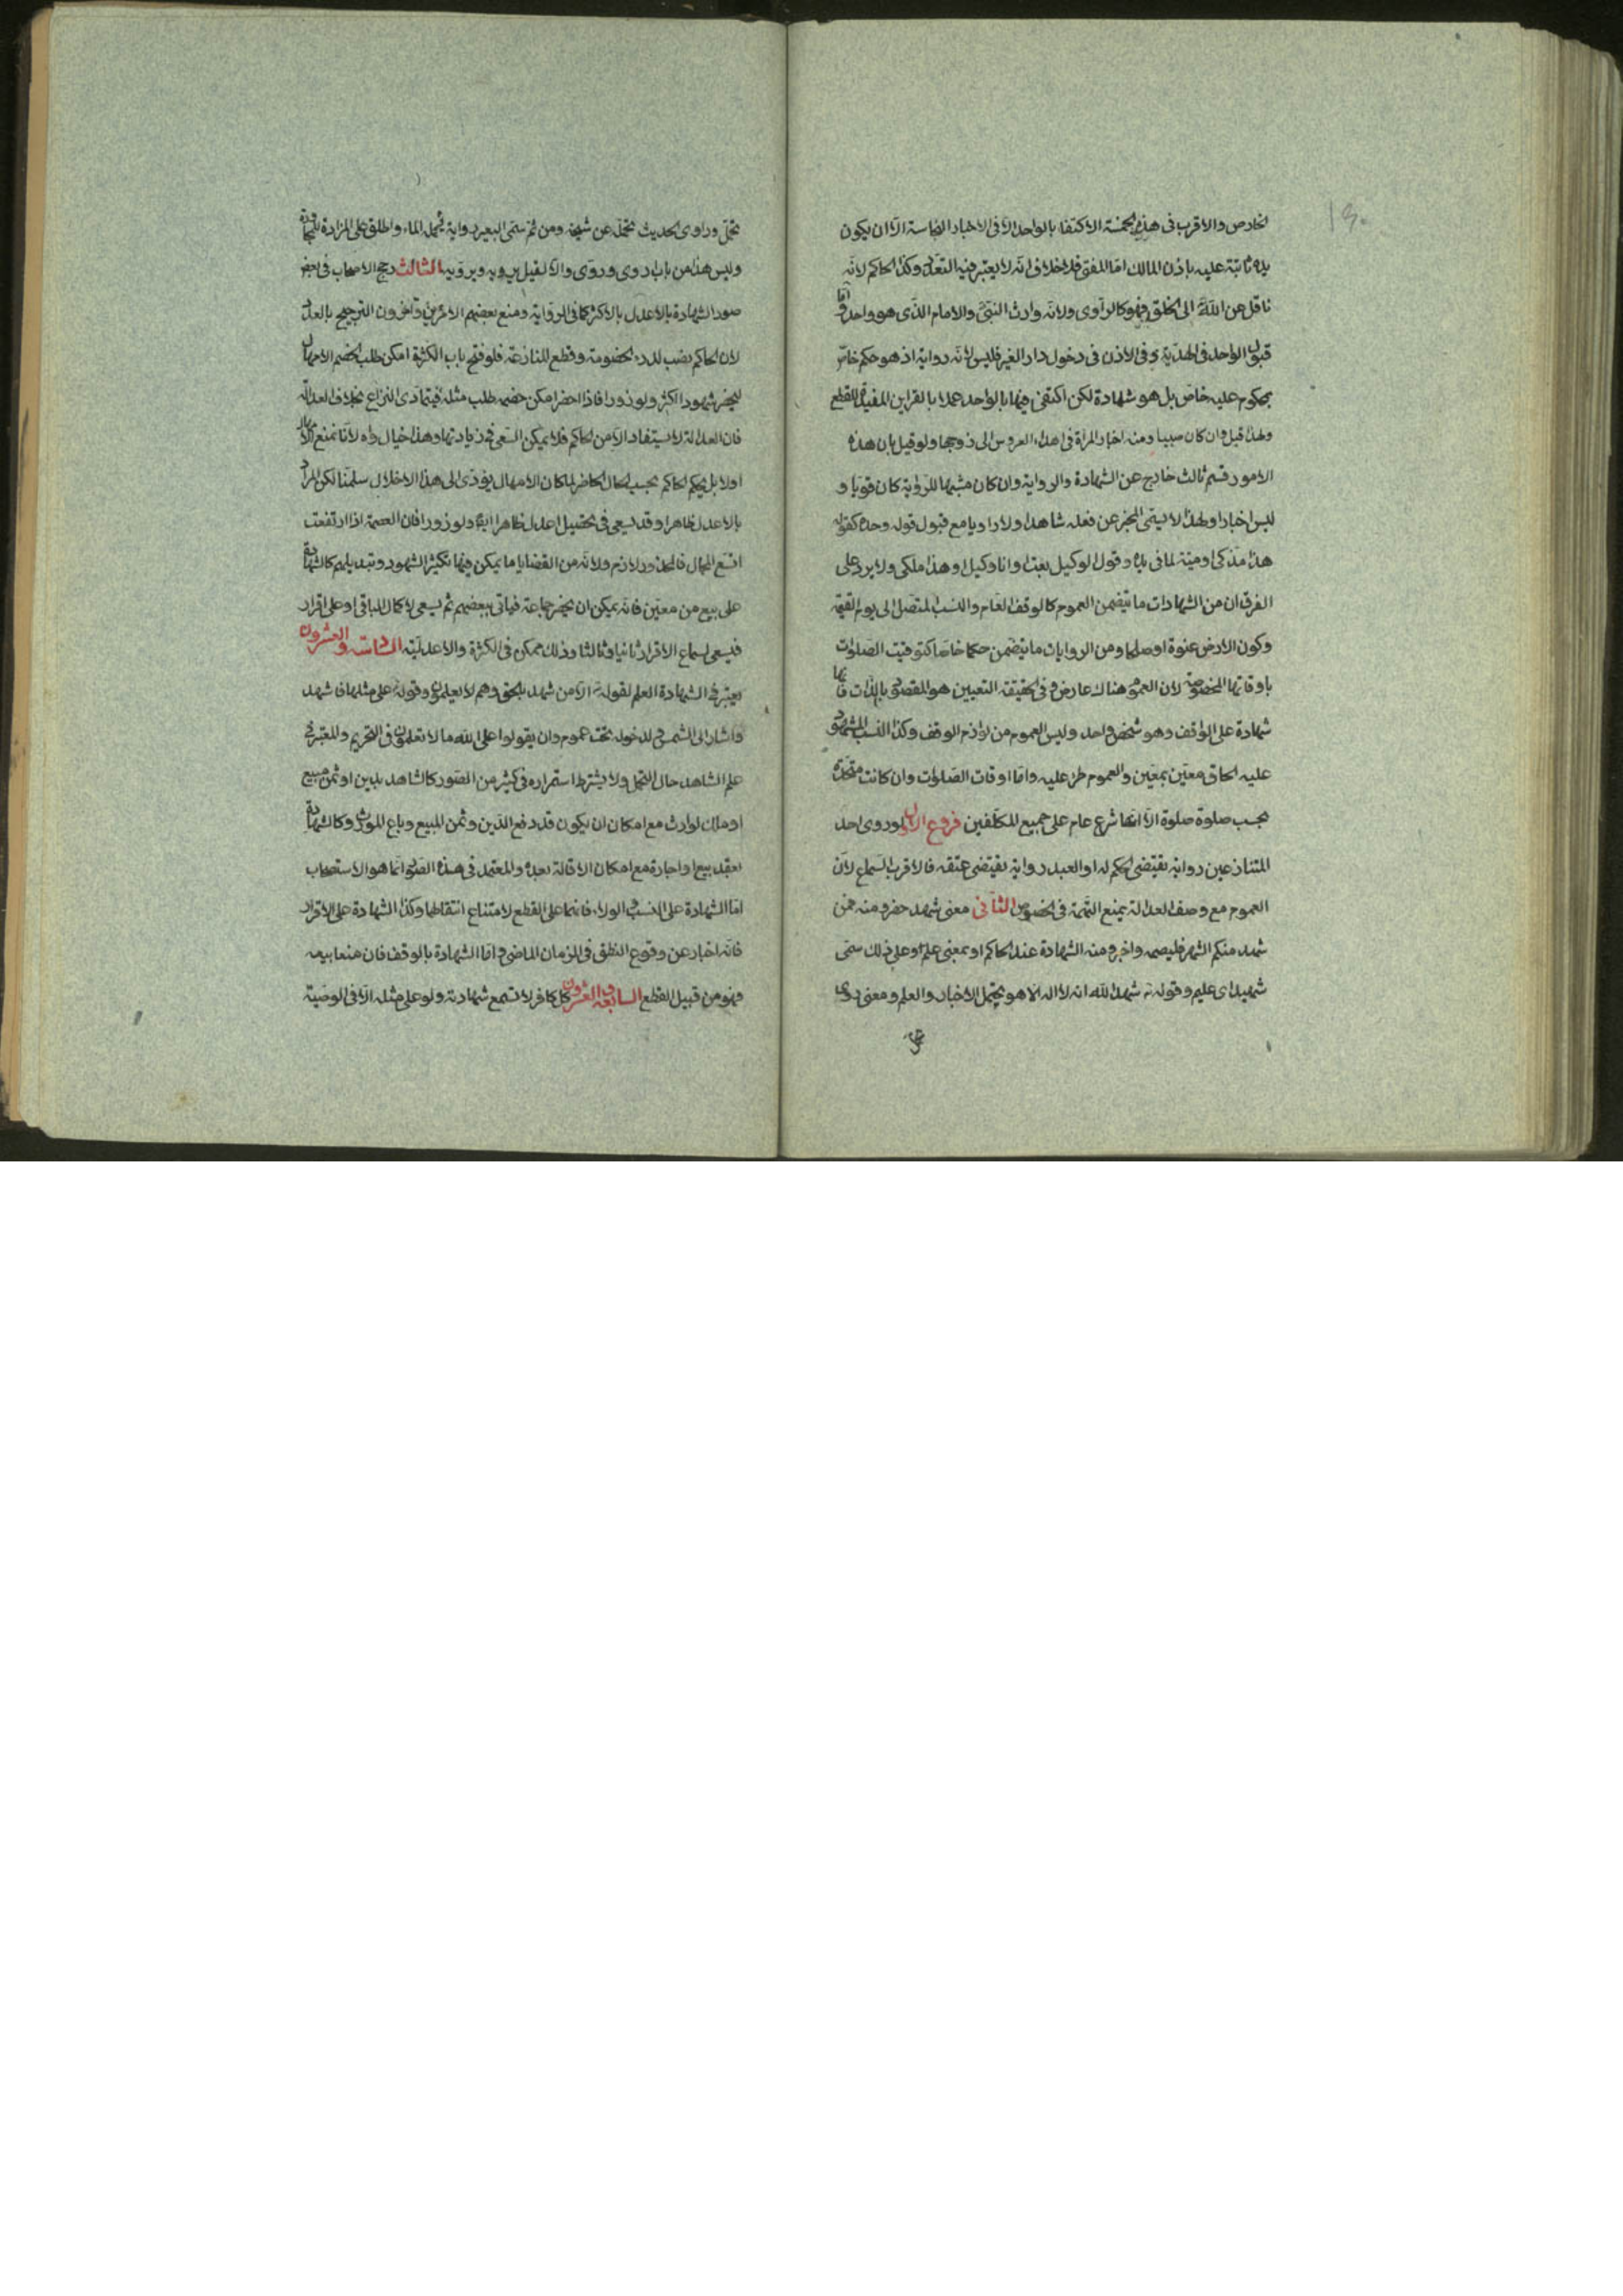 ١٩٠
الخارص والاقرب فى هذه الخمسة الاكتفاء بالواحد الا فى الاخبار بالنجاسة الا ان يكون
يده ثابتة عليه باذن المالك اما المفتى فلا خلاف انه لا يعتبر فيه التعدد وكذا الحاكم لانه
ناقل عن الله الى الخلق فهو كالراوى ولانه وارث النبى والامام الذى هو واحد واما
قبول الواحد فى الهدية وفى الاذن فى دخول دار الغير فليس لانه رواية اذ هو حكم خاص
بمحكوم عليه خاص بل هو شهادة لكن اكتفى فيها بالواحد عملا بالقراين المفيدة للقطع
ولهذا قيل وان كان صبيا ومنه اخبار المراة فى اهداء العروس الى زوجها ولو قيل بان هذه
الامور قسم ثالث خارج عن الشهادة والرواية وان كان مشبها للرواية كان قويا و
ليس اخبارا ولهذا لا يسمى المخبر عن فعله شاهدا ولا راويا مع قبول قوله وحده كقوله
هذا مذكى او ميتة لما فى يده وقول الوكيل بعت او انا وكيل او هذا ملكى ولا يرد على
الفرق ان من الشهادات ما يتضمن العموم كالوقف العام والنسب المتصل الى يوم القيمة
وكون الارض عنوة او صلحا ومن الروايات ما يتضمن حكما خاصا كتوقيت الصلوات
باوقاتها المخصوصة لان العموم هناك عارض وفى الحقيقة التعيين هو المقصود بالذات فانها
شهادة على الواقف وهو شخص واحد وليس العموم من لوازم الوقف وكذا النسب المشهود
عليه الحاق معين بمعين والعموم طرا عليه واما اوقات الصلوات وان كانت متحدة
بحسب صلوة صلوة الا انها شرع عام على جميع المكلفين فروع الاول لو روى احد
المتنازعين رواية يقتضى الحكم له او العبد رواية يقتضى عتقه فالاقرب السماع لان
العموم مع وصف العدالة يمنع التهمة فى الخصوص الثانى معنى شهد حضر ومنه فمن
شهد منكم الشهر فليصمه واخبر ومنه الشهادة عند الحاكم او بمعنى علم او على ذلك سمى
شهيد اى عليم وقوله تع شهد الله انه لا اله الا هو يحتمل الاخبار والعلم ومعنى روى
تحمل وراوى الحديث تحمله عن شيخه ومن ثم سمى البعير رواية لحمل الماء واطلق على المزادة للمجاورة
وليس هذا من باب اروى وروى والا لقيل يرويه ويرويه الثالث رجح الاصحاب فى بعض
صور الشهادة بالاعدل بالاكثر كما فى الرواية ومنع بعضهم الامرين واخرون الترجيح بالعدد
لان الحاكم نصب لدرء الخصومة وقطع المنازعة فلو فتح باب الكثرة امكن طلب الخصم الامهال
ليحضر شهودا اكثر ولو زورا فاذا احضر امكن خصمه طلب مثله فيتمادى النزاع بخلاف العدالة
فان العدالة لا يستفاد الا من الحاكم فلا يمكن السعى فى زيادتها وهذا خيال واه لانا نمنع الامهال
اولا بل يحكم الحاكم بحسب الحال الحاضر لما كان الامهال يؤدى الى هذا الاخلال سلمنا لكن المراد
بالاعدل ظاهرا وقد يسعى فى تحصيل اعدل ظاهرا ايضا ولو زورا فان العصمة اذا ارتفعت
اتسع المجال فالمحذور لازم ولانه من القضايا ما يمكن فيها تكثير الشهود وتبديلهم كالشهادة
على بيع من معين فانه يمكن ان يحضر جماعة فياتى ببعضهم ثم يسعى لاكمال الباقى او على اقرار
فيسعى لسماع الاقرار ثانيا وثالثا وذلك ممكن فى الكثرة والاعدلية السادسة والعشرون
يعتبر فى الشهادة العلم لقوله تع الا من شهد بالحق وهم لا يعلمون وقوله ع على مثلها فاشهد
واشار الى الشمس ولدخوله تحت عموم وان يقولوا على الله ما لا تعلمون فى التحريم والمعتبر فى
علم الشاهد حال التحمل ولا يشترط استمراره فى كثير من الصور كالشاهد بدين او ثمن مبيع
او ملك لوارث مع امكان ان يكون قد دفع الدين وثمن المبيع وباع الموروث وكالشهادة
بعقد بيع او اجارة مع امكان الاقالة بعده والمعتمد فى هذه الصور انما هو الاستصحاب
اما الشهادة على النسب والولاء فانها على القطع لامتناع انتقالهما وكذا الشهادة على الاقرار
فانه اخبار عن وقوع النطق فى الزمان الماضى واما الشهادة بالوقف فان منعنا بيعه
فهو من قبيل القطع السابعة والعشرون كل كافر لا تسمع شهادته ولو على مثله الا فى الوصية